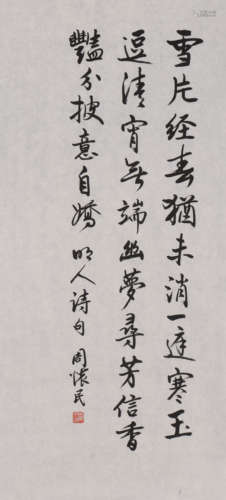 雪片经春犹未消一庭寒玉
逗清宵无端幽梦寻芳信香
艷分披意自娇 明人诗句 周怀民